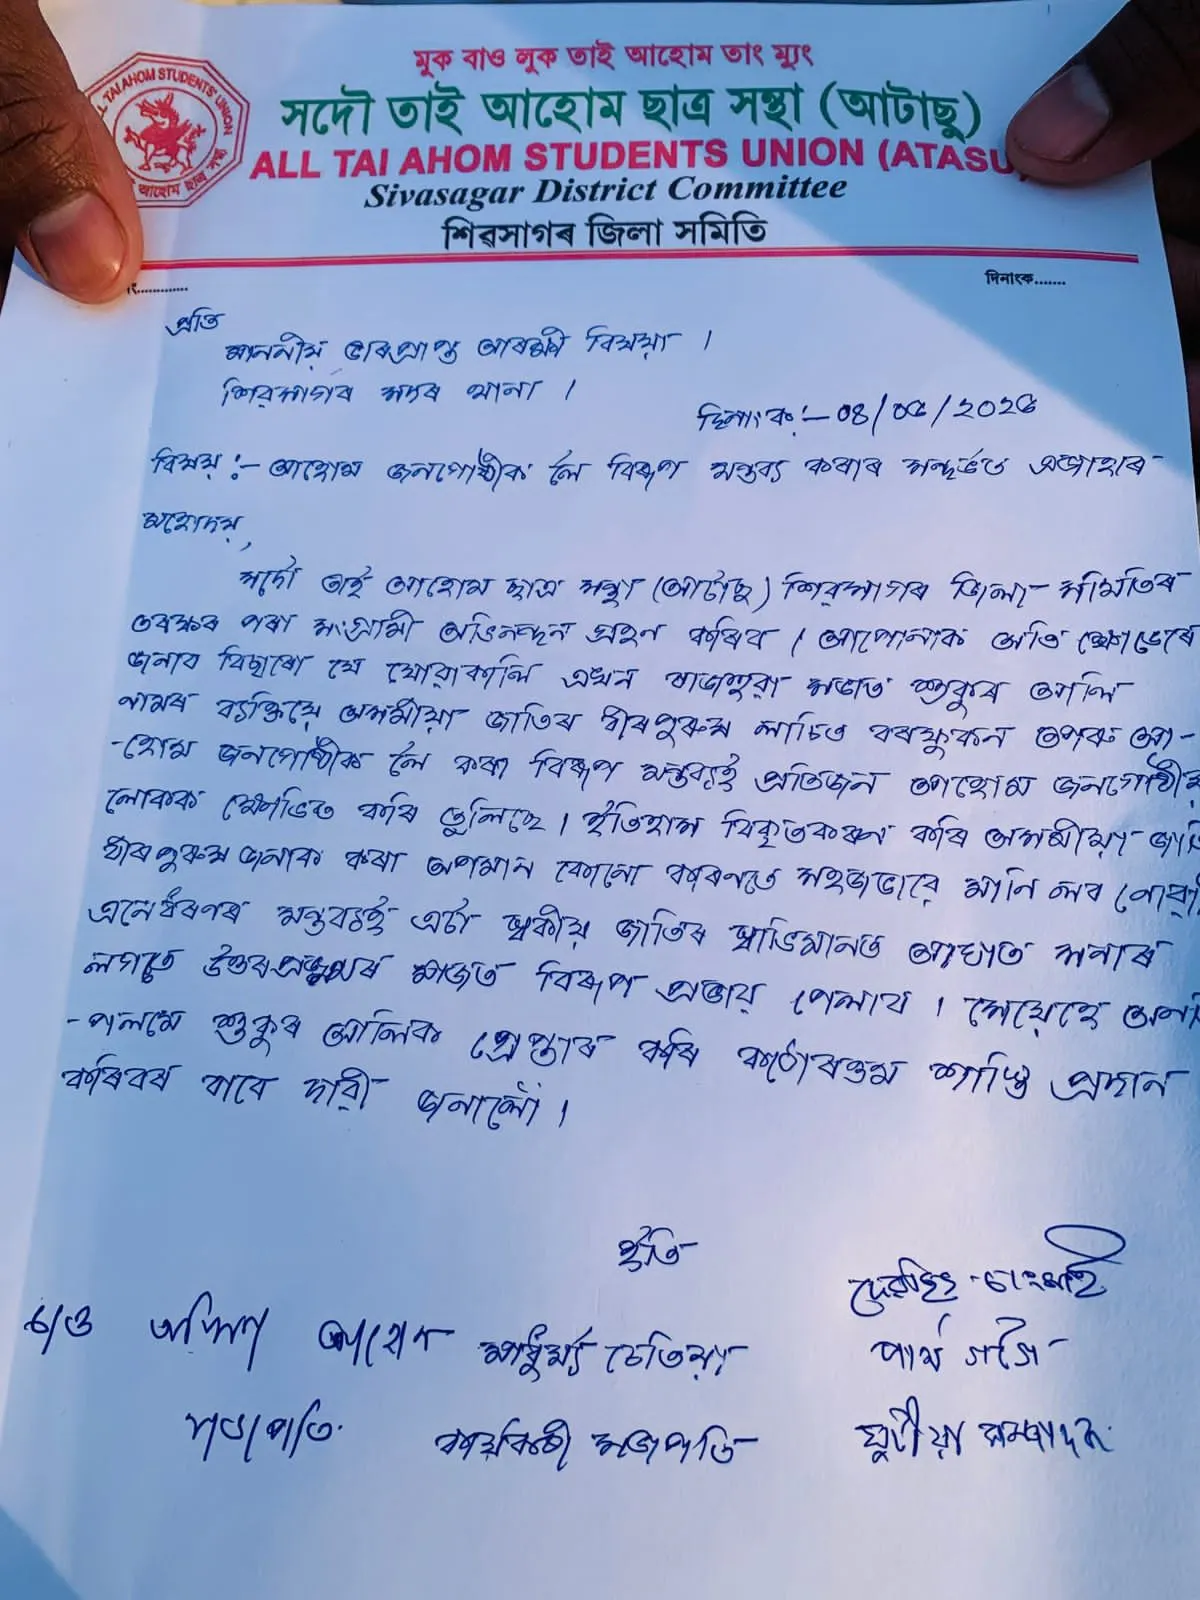 মুক বাও লুক তাই আহোম তাং ম্যুং
সদৌ তাই আহোম ছাত্ৰ সন্থা (আটাছু)
ALL TAI AHOM STUDENTS UNION (ATASU
Sivasagar District Committee
শিৱসাগৰ জিলা সমিতি
ALL TAI AHOM STUDENTS' UNION
আহোম ছাত্ৰ সন্থা
নং............
দিনাংক.......
প্ৰতি
মাননীয় ভাৰপ্ৰাপ্ত আৰক্ষী বিষয়া ।
শিৱসাগৰ সদৰ থানা ।
দিনাংক:-
বিষয় :- আহোম জনগোষ্ঠীক লৈ বিৰূপ মন্তব্য কৰাৰ সন্দৰ্ভত এজাহাৰ
মহোদয়,
সদৌ তাই আহোম ছাত্ৰ সন্থা (আটাছু) শিৱসাগৰ জিলা সমিতিৰ
তৰফৰ পৰা সংগ্ৰামী অভিনন্দন গ্ৰহণ কৰিব । আপোনাক অতি ক্ষোভেৰে
জনাব বিছাৰো যে যোৱাকালি এখন ৰাজহুৱা সভাত শুকুৰ আলি
নামৰ ব্যক্তিয়ে অসমীয়া জাতিৰ বীৰপুৰুষ লাচিত বৰফুকন তথা আ-
-হোম জনগোষ্ঠীক লৈ কৰা বিৰূপ মন্তব্যই প্ৰতিজন আহোম জনগোষ্ঠীৰ
লোকক ক্ষোভিত কৰি তুলিছে । ইতিহাস বিকৃতকৰণ কৰি অসমীয়া জাতি
বীৰপুৰুষ জনাক কৰা অপমান কোনো কাৰণতে সহজভাৱে মানি লব নোৱাৰি
এনেধৰণৰ মন্তব্যই এটা স্বকীয় জাতিৰ স্বাভিমানত আঘাত হনাৰ
লগতে উত্তৰপ্ৰজন্মৰ মাজত বিৰূপ প্ৰভাৱ পেলাব । সেয়েহে
-পলমে শুকুৰ আলিক গ্ৰেপ্তাৰ কৰি কঠোৰতম শাস্তি প্ৰদান
কৰিবৰ বাবে দাবী জনালোঁ ।
ইতি
মাধুৰ্য্য চেতিয়া
পাৰ্থ গগৈ
সভাপতি
কাৰ্যকৰী সভাপতি